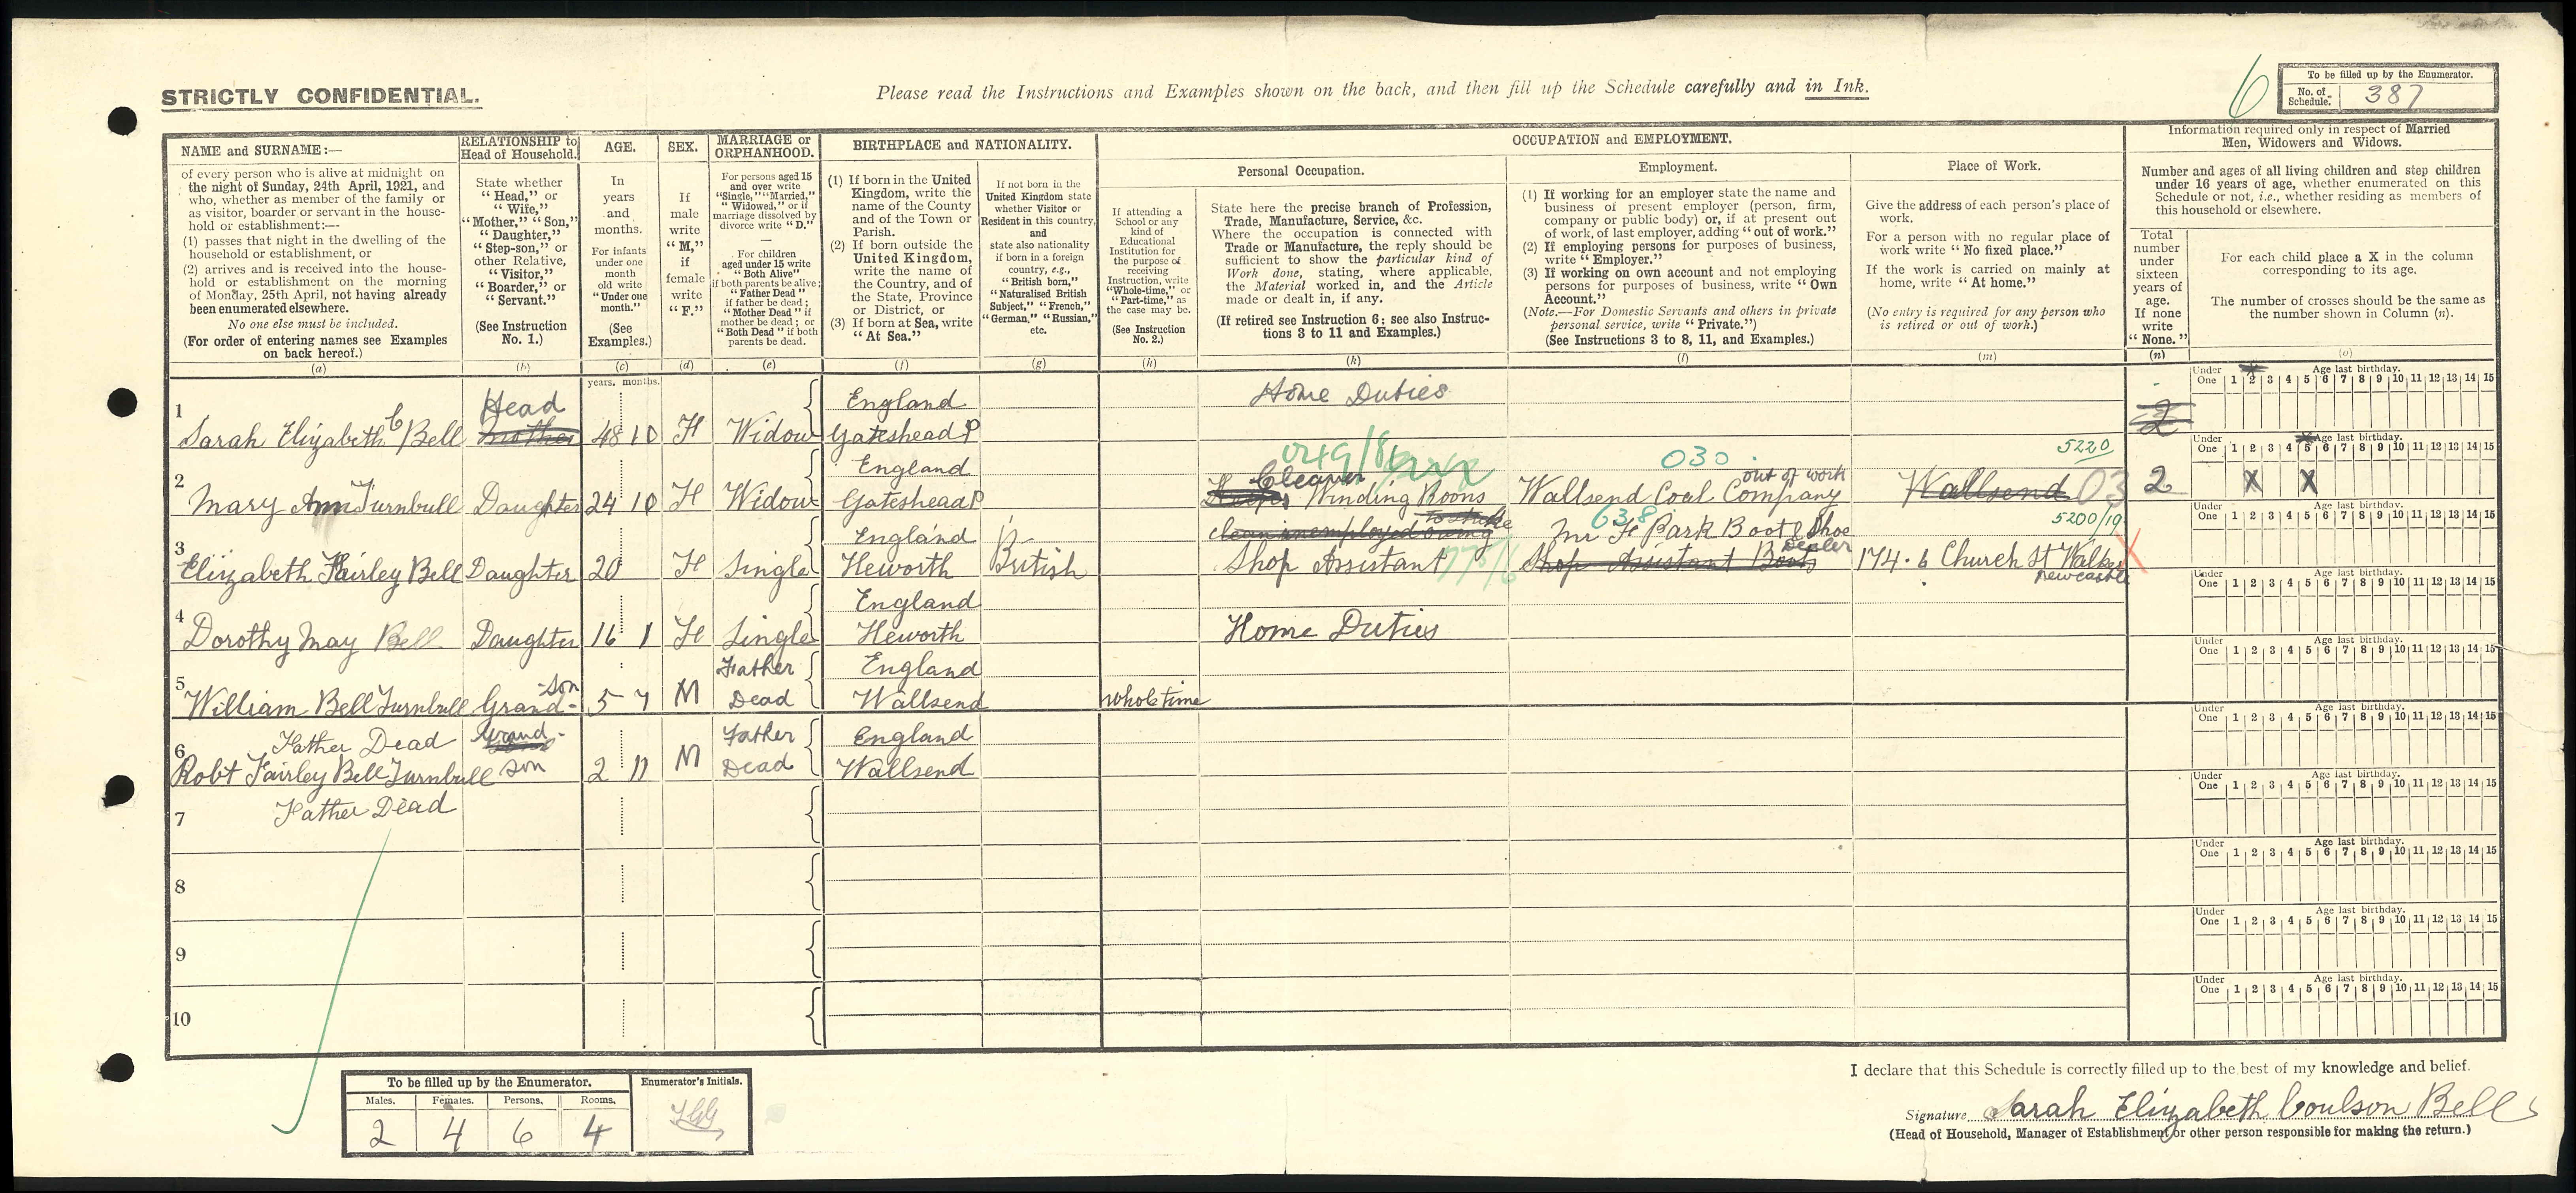 STRICTLY CONFIDENTIAL.
Please read the Instructions and Examples shown on the back, and then fill up the Schedule carefully and in Ink.
6
To be filled up by the Enumerator.
No. of Schedule. 387
NAME and SURNAME:—
of every person who is alive at midnight on
the night of Sunday, 24th April, 1921, and
who, whether as member of the family or
as visitor, boarder or servant in the house-
hold or establishment:—
(1) passes that night in the dwelling of the
household or establishment, or
(2) arrives and is received into the house-
hold or establishment on the morning
of Monday, 25th April, not having already
been enumerated elsewhere.
No one else must be included.
(For order of entering names see Examples
on back hereof.)
(a)
RELATIONSHIP to
Head of Household.
State whether
"Head," or
"Wife,"
"Mother," "Son,"
"Daughter,"
"Step-son," or
other Relative,
"Visitor,"
"Boarder," or
"Servant."
(See Instruction
No. 1.)
(b)
AGE.
In
years
and
months.
For infants
under one
month
old write
"Under one
month."
(See
Examples.)
(c)
SEX.
If
male
write
"M,"
if
female
write
"F."
(d)
MARRIAGE or
ORPHANHOOD.
For persons aged 15
and over write
"Single," "Married,"
"Widowed," or if
marriage dissolved by
divorce write "D."
—
For children
aged under 15 write
"Both Alive"
if both parents be alive;
"Father Dead"
if father be dead;
"Mother Dead" if
mother be dead; or
"Both Dead" if both
parents be dead.
(e)
BIRTHPLACE and NATIONALITY.
(1) If born in the United
Kingdom, write the
name of the County
and of the Town or
Parish.
(2) If born outside the
United Kingdom,
write the name of
the Country, and of
the State, Province
or District, or
(3) If born at Sea, write
"At Sea."
(f)
If not born in the
United Kingdom state
whether Visitor or
Resident in this country,
and
state also nationality
if born in a foreign
country, e.g.,
"British born,"
"Naturalised British
Subject," "French,"
"German," "Russian,"
etc.
(g)
OCCUPATION and EMPLOYMENT.
Personal Occupation.
If attending a
School or any
kind of
Educational
Institution for
the purpose of
receiving
Instruction, write
"Whole-time," or
"Part-time," as
the case may be.
(See Instruction
No. 2.)
(h)
State here the precise branch of Profession,
Trade, Manufacture, Service, &c.
Where the occupation is connected with
Trade or Manufacture, the reply should be
sufficient to show the particular kind of
Work done, stating, where applicable,
the Material worked in, and the Article
made or dealt in, if any.
(If retired see Instruction 6; see also Instruc-
tions 3 to 11 and Examples.)
(k)
Employment.
(1) If working for an employer state the name and
business of present employer (person, firm,
company or public body) or, if at present out
of work, of last employer, adding "out of work."
(2) If employing persons for purposes of business,
write "Employer."
(3) If working on own account and not employing
persons for purposes of business, write "Own
Account."
(Note.—For Domestic Servants and others in private
personal service, write "Private.")
(See Instructions 3 to 8, 11, and Examples.)
(l)
Place of Work.
Give the address of each person's place of
work.
For a person with no regular place of
work write "No fixed place."
If the work is carried on mainly at
home, write "At home."
(No entry is required for any person who
is retired or out of work.)
(m)
Information required only in respect of Married
Men, Widowers and Widows.
Number and ages of all living children and step children
under 16 years of age, whether enumerated on this
Schedule or not, i.e., whether residing as members of
this household or elsewhere.
Total
number
under
sixteen
years of
age.
If none
write
"None."
(n)
For each child place a X in the column
corresponding to its age.
The number of crosses should be the same as
the number shown in Column (n).
(o)
years. months.
Under One Age last birthday. 1 2 3 4 5 6 7 8 9 10 11 12 13 14 15
1 Sarah Elizabeth C Bell Head mother 48 10 F Widow England Gateshead P Home Duties 2
Under One Age last birthday. 1 2 3 4 5 6 7 8 9 10 11 12 13 14 15
2 Mary Ann Turnbull Daughter 24 10 F Widow England Gateshead P 049/8 Cleaner Winding Rooms 030 Wallsend Coal Company out of work 5220 Wallsend 03 2 X X
clean unemployed owing to strike
Under One Age last birthday. 1 2 3 4 5 6 7 8 9 10 11 12 13 14 15
3 Elizabeth Fairley Bell Daughter 20 F Single England Heworth British Shop Assistant 775/6 638 Mr F Park Boot & Shoe Dealer Shop Assistant Boots 5200/19 174.6 Church St Walker Newcastle X
Under One Age last birthday. 1 2 3 4 5 6 7 8 9 10 11 12 13 14 15
4 Dorothy May Bell Daughter 16 1 F Single England Heworth Home Duties
Under One Age last birthday. 1 2 3 4 5 6 7 8 9 10 11 12 13 14 15
5 William Bell Turnbull Grand-son 5 7 M Father Dead England Wallsend whole time
Father Dead
Under One Age last birthday. 1 2 3 4 5 6 7 8 9 10 11 12 13 14 15
6 Robt Fairley Bell Turnbull Grand-son 2 11 M Father Dead England Wallsend
Father Dead
Under One Age last birthday. 1 2 3 4 5 6 7 8 9 10 11 12 13 14 15
7
Under One Age last birthday. 1 2 3 4 5 6 7 8 9 10 11 12 13 14 15
8
Under One Age last birthday. 1 2 3 4 5 6 7 8 9 10 11 12 13 14 15
9
Under One Age last birthday. 1 2 3 4 5 6 7 8 9 10 11 12 13 14 15
10
Under One Age last birthday. 1 2 3 4 5 6 7 8 9 10 11 12 13 14 15
To be filled up by the Enumerator.
Males. Females. Persons. Rooms.
2 4 6 4
Enumerator's Initials.
I declare that this Schedule is correctly filled up to the best of my knowledge and belief.
Signature Sarah Elizabeth Coulson Bell
(Head of Household, Manager of Establishment or other person responsible for making the return.)